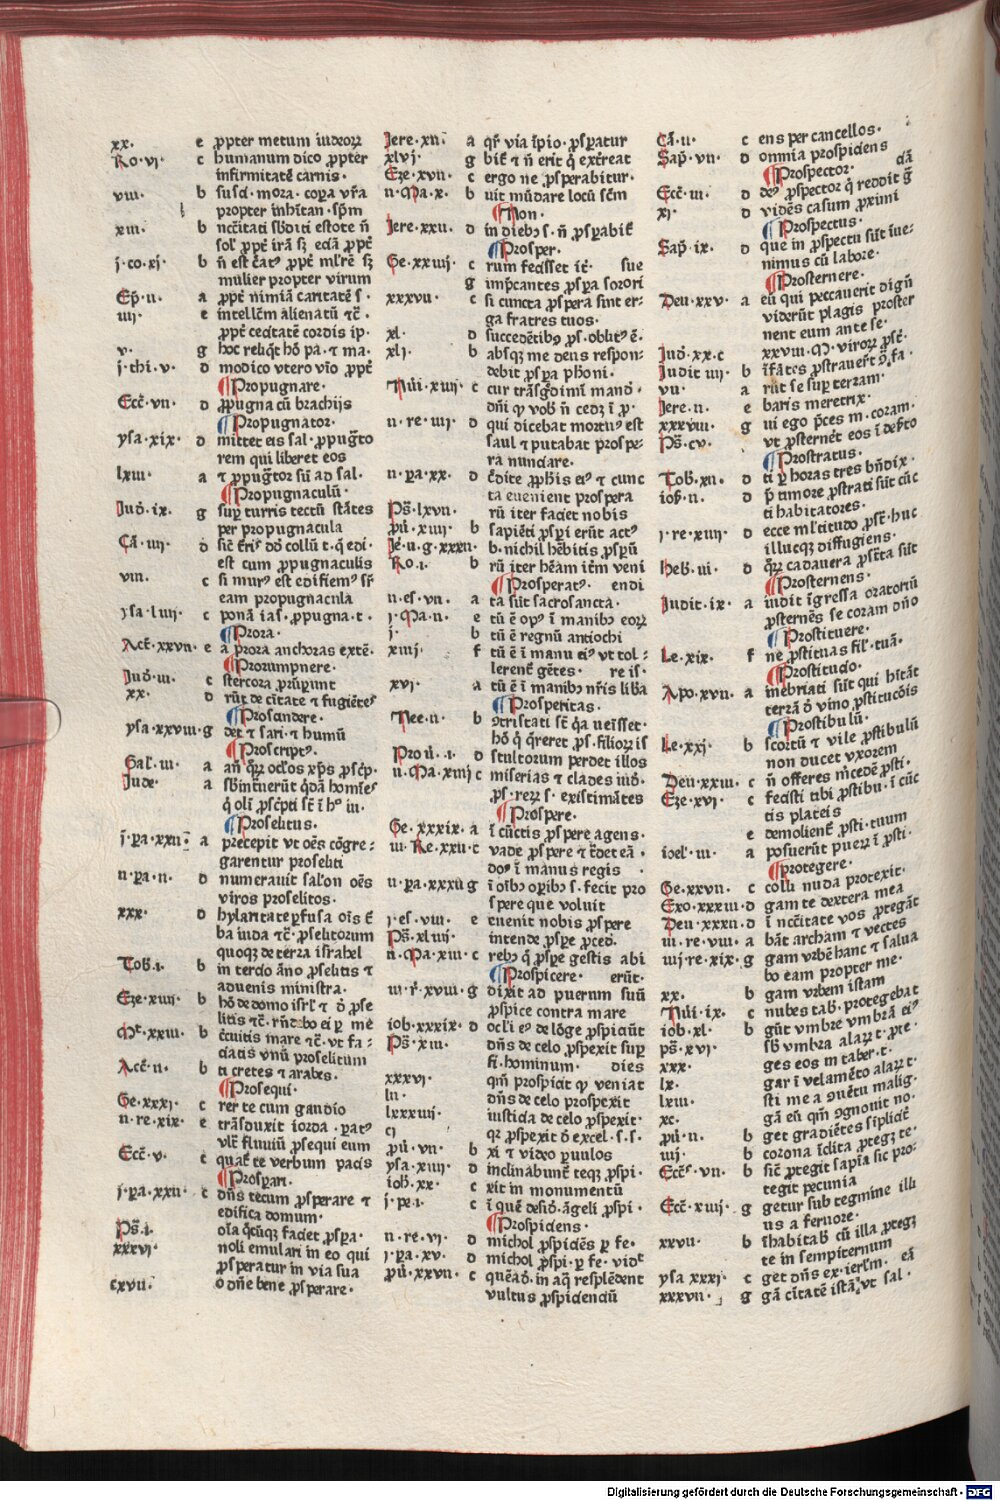 xx. e ꝓpter metum iudeoꝝ
Ro·vi· c humanum dico ꝓpter
infirmitatē carnis·
viii· b
propter inhītan· spm̄
xiii· b nccītati sb̄diti estote n̄
j·co·xj· b
mulier propter virum
Ep̄·ii· a ꝓpt̄ nimiā caritatē s·
iiii· e intellc̄m alienatū ⁊c̄·
ꝓpt̄ cecitatē cordis ip·
v· g hoc relinq̄t hō pa· ⁊ ma·
j·thi·v· d modico vtero vīo ꝓpt̄
¶Propugnare·
Ecc̄·vii· d ꝓpugna cū brachijs
¶Propugnator·
ysa·xix· d mittet eis sal·ꝓpugt̄o
rem qui liberet eos
lxiii· a ⁊ ꝓpugt̄or sū ad sal·
¶Propugnaculū·
Iud̄·ix· g suꝑ turris tectū stātes
per propugnacula
Cā·iiii· d
est cum ꝓpugnaculis
viii· c si mur⁹ est edifiem⁹ sr̄
eam propugnacula
ysa·liiii· c ponā ias·ꝓpugna·t·
¶Prora·
Act̄·xxvii· e a ꝓrora anchoras extē·
¶Prorumpnere·
Iud̄·iii· c stercora ꝓrūpunt
xx· d rūt de cītate ⁊ fugiētes
¶Proscindere·
ysa·xxviii·g det ⁊ sari·⁊ humū
¶Proscript⁹·
Gal̄·iii· a
Jude· a
¶Proselitus·
j·pa·xxii· a precepit vt oēs cōgre-
garentur proseliti
ii·pa·ii· d numerauit sal'on oēs
viros proselitos·
xxx· d hylaritate ꝑfusa oīs t̄
ba iuda ⁊c̄·ꝓselitorum
quoqꝫ de terra israhel
Tob̄·i· b in tercio āno ꝓselitis ⁊
aduenis ministra·
Eze·xiiii· b hō de domo isrl̄ ⁊ d̄ ꝓse
litis ⁊c̄·rn̄debo ei ꝑ me
Mt̄·xxiii· b c̄cuitis mare ⁊c̄·vt fa-
ciatis vnū proselitum
Act̄·ii· b ti cretes ⁊ arabes·
¶Prosequi·
Ge·xxxj· c rer te cum gaudio
ii·re·xix· e trāsduxit iorda·
vlt̄ fluuiū ꝓsequi eum
Ecc̄·v· c quat̄ te verbum pacis
¶Prosꝑari·
j·pa·xxii· c dn̄s tecum ꝓsperare ⁊
edifica domum·
Ps̄·i· oīa q̄cūqꝫ faciet ꝓsꝑa·
xxxvi· noli emulari in eo qui
ꝓsperatur in via sua
cxvii· o dn̄e bene ꝓsperare·
Jere·xii· a qr̄ via īpio·ꝓsꝑatur
xlvj· g
Eze·xvii· c ergo ne ꝓsperabitur·
ii·Ma·x· b uit mūdare locū sc̄m
¶Non·
Jere·xxii· d in dieb⁹ s·n̄ ꝓsꝑabit̄
¶Prosper·
Ge·xxiiij· c rum fecisset it̄· sue
g imp̄cantes ꝓsꝑa sorori
xxxvii· c si cuncta ꝓspera sint er-
ga fratres tuos·
xl· d succedētib⁹ ꝓs·oblit⁹ ē·
xlj· b absqꝫ me deus respon-
debit ꝓsꝑa pħoni·
Nūi·xiiij· c cur trāsḡdimī mand·
dn̄i ꝙ vob̄ n̄ cedꝫ ī ꝓ·
ii·re·iiij· d qui dicebat mortu⁹ est
saul ⁊ putabat prospe-
ra nunciare·
ii·pa·xx· d c̄dite ꝓph̄is ei⁹ ⁊ cunc
ta euenient prospera
Ps̄·lxvii· rū iter faciet nobis
ꝓū·xiii· b sapiēti ꝓsꝑi erūt act⁹
Je·ii·g·xxxii· b·nichil hēbitis ꝓsꝑū
Ro·i· b rū iter hēam itm̄ veni
¶Prosperat⁹· endi
ii·es·vii· a ta sūt sacrosancta·
j·Ma·ii· e tū ē op⁹ ī manib⁹ eoꝝ
j· b tū ē regnū antiochi
xiij· f tū ē ī manu ei⁹ vt tol-
lerent̄ gētes· re is·
xvi· a tū ē ī manib⁹ nr̄is liba
¶Prosperitas·
Nee·ii· b ꝯtristati st̄ q̄a ueīsset·
hō q̄ q̄reret ꝓs·filioꝝ is
Proū·i· d stultorum perdet illos
ii·Ma·xiiij c miserias ⁊ clades iud̄·
ꝓs·reꝝ s·existimātes
¶Prospere·
Ge·xxxix· a ī cūctis ꝓspere agens·
iii·Re·xxii·c vade ꝓspere ⁊ t̄det eā·
do⁹ ī manus regis
ii·pa·xxxii g ī oīb⁹ oꝑib⁹ s·fecit pro
spere que voluit
j·es·viii· e euenit nobis ꝓspere
Ps̄·xliiij· intende ꝓsꝑe ꝓced̄·
ii·Ma·xiii· c reb⁹ q̄ ꝓsꝑe gestis abi
¶Prospicere· erūt·
iii·r̄·xviii· g dixit ad puerum suū
ꝓspice contra mare
iob·xxxix· d ocl'i e⁹ de lōge ꝓspiciūt
Ps̄·xiii· dn̄s de celo ꝓspexit suꝑ
fi·hominum· dies
xxxvi· qm̄ prospicit ꝙ veniat
lii· dn̄s de celo prospexit
lxxxiiij· iusticia de celo ꝓspexit·
cj qꝛ ꝓspexit d̄ excel·s·s·
ꝓū·vii· b xi ⁊ video ꝑuulos
ysa·xiiij· d inclinabunt̄ teqꝫ ꝓspi·
iob̄·xx· c xit in monumentū
j·pe·i· c ī quē desid̄·āgeli ꝓspi·
¶Prospiciens·
ii·re·vi· d michol ꝓspiciēs ꝑ fe·
j·pa·xv· d michol ꝓspi·ꝑ fe·vidt̄
ꝓū·xxvii· c quēad̄·in aq̄ resplēdent
vultus ꝓspicienciū
Cā·ii· c ens per cancellos·
Sap̄·vii· d omnia prospiciens
¶Prospector· ciā
Ecc̄·iii· d de⁹ ꝓspector q̄ reddit ḡ
xj· d vidēs casum ꝓximi
¶Prospectus·
Sap̄·ix· d que in ꝓspectu sūt īue-
nimus cū labore·
¶Prosternere·
Deu·xxv· a eū qui peccauerit dignū
viderūt plagis proster
nent eum ante se·
Iud̄·xx·c xxviii·M·viroꝝ ꝓst̄·
Judit iiij· b īfātes ꝓstrauert̄ ꝯ·fa·
vii· a rūt se suꝑ terram·
Jere·ii· e baris meretrix·
xxxviii· g ui ego p̄ces m·coram·
Ps̄·cv· vt ꝓsternēt eos ī dep̄to
¶Prostratus·
Tob̄·xii· d ti ꝑ horas tres bn̄dix·
iob̄·ii· d p̄ timore ꝓstrati sūt cūc
ti habitatores·
j·re·xiiij· d ecce ml'titudo ꝓst̄·huc
illucqꝫ diffugiens·
Heb̄·iii· d qꝝ cadauera ꝓst̄ta sūt
¶Prosternens·
Judit·ix· a iudit īgressa oratoriū
ꝓsternēs se coram dn̄o
¶Prostituere·
Le·xix· f ne ꝓstituas fil'·tuā·
¶Prostitucio·
Apo·xvii· a inebriati sūt qui hītāt
terrā d̄ vino ꝓstitucōis
¶Prostibulū·
Le·xxj· b scortū ⁊ vile ꝓstibulū
non ducet vxorem
Deu·xxiii· c n̄ offeres m̄cedē ꝓsti·
Eze·xvj· c fecisti tibi ꝓstibu·ī cūc
tis plateis
e demolient̄ ꝓsti·tuum
iohel'·iii· a posuerūt pueꝝ ī ꝓsti·
¶Protegere·
Ge·xxvii· c colli nuda protexit·
Exo·xxxiii·d gam te dextera mea
Deu·xxxii·d ī nccītate vos ꝓtegāt
iii·re·viii· a bāt archam ⁊ vectes
iiij·re·xix· g gam vrbē hanc ⁊ salua
bo eam propter me·
xx· b gam vrbem istam
Nūi·ix· c nubes tab̄·protegebat
iob·xl· b gūt vmbre vmbrā ei⁹
ps̄·xvi· sb̄ vmbra alaꝝ t·ꝓte·
xxx· ges eos in taber·t·
lx· gar ī velamēto alaꝝ t·
lxiii· sti me a ꝯuētu malig·
xc· gā eū qm̄ ꝯgnouit no·
ꝓū·ii· b get gradiētes sīplicit̄
iiij· b corona īclita ꝓtegꝫ te·
Ecc̄·vii· b sic̄ ꝓtegit sapīa sic pro-
tegit pecunia
Ecc̄·xiiij· g getur sub tegmine illi
us a feruore·
xxvii· b īhabitab̄ cū illa ꝓtegꝫ
te in sempiternum
ysa xxxj· c get dn̄s ex·ierl'm· eā
xxxvii· g gā cītatē istā·vt sal·
Digitalisierung gefördert durch die Deutsche Forschungsgemeinschaft · DFG